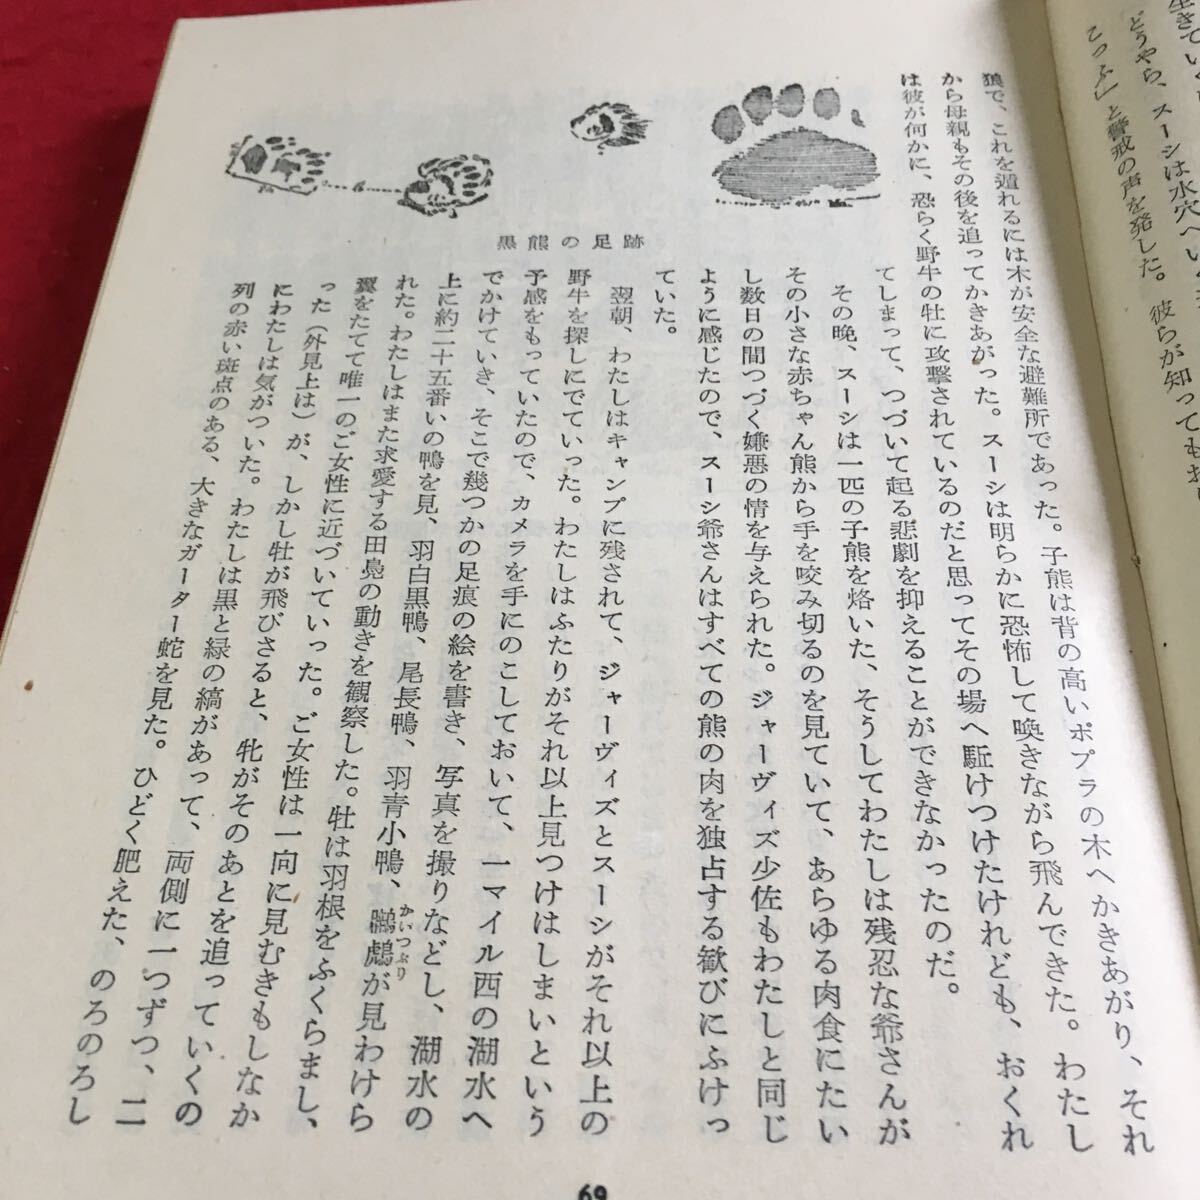 生きていく
どうやら、スーシは水穴へい
こっふ」と警戒の声を発した。彼らが知ってもお
狼で、これを遁れるには木が安全な避難所であった。子熊は背の高いポプラの木へかきあがり、それ
から母親もその後を追ってかきあがった。スーシは明らかに恐怖して喚きながら飛んできた。わたし
は彼が何かに、恐らく野牛の牡に攻撃されているのだと思ってその場へ駈けつけたけれども、おくれ
てしまって、つづいて起る悲劇を抑えることができなかったのだ。
その晩、スーシは一匹の子熊を烙いた、そうしてわたしは残忍な爺さんが
その小さな赤ちゃん熊から手を咬み切るのを見ていて、あらゆる肉食にたい
し数日の間つづく嫌悪の情を与えられた。ジャーヴィズ少佐もわたしと同じ
ように感じたので、スーシ爺さんはすべての熊の肉を独占する歓びにふけっ
ていた。
黒熊の足跡
翌朝、わたしはキャンプに残されて、ジャーヴィズとスーシがそれ以上の
野牛を探しにでていった。わたしはふたりがそれ以上見つけはしまいという
予感をもっていたので、カメラを手にのこしておいて、一マイル西の湖水へ
でかけていき、そこで幾つかの足痕の絵を書き、写真を撮りなどし、湖水の
上に約二十五番いの鴨を見、羽白黒鴨、尾長鴨、羽青小鴨、鸊鷉が見わけら
かいつぶり
れた。わたしはまた求愛する田鳧の動きを観察した。牡は羽根をふくらまし、
翼をたてて唯一のご女性に近づいていった。ご女性は一向に見むきもしなか
った（外見上は）が、しかし牡が飛びさると、牝がそのあとを追っていくの
にわたしは気がついた。わたしは黒と緑の縞があって、両側に一つずつ、二
列の赤い斑点のある、大きなガーター蛇を見た。ひどく肥えた、のろのろし
69